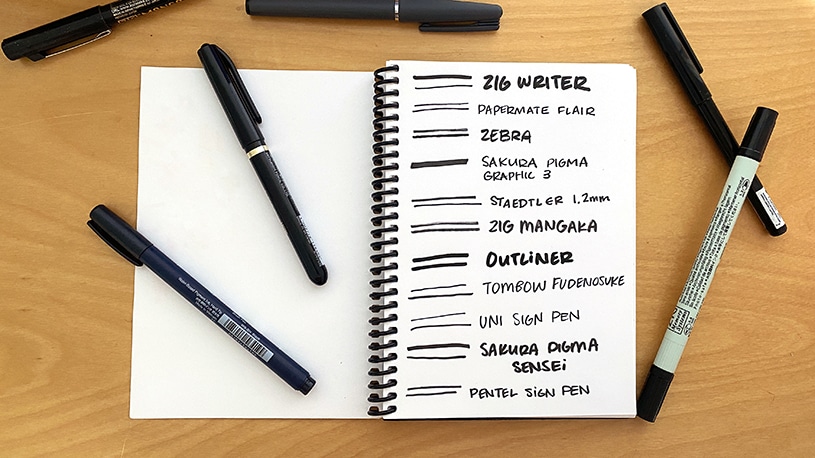 ZIG WRITER
PAPERMATE FLAIR
ZEBRA
SAKURA PIGMA
GRAPHIC 3
STAEDTLER 1.2mm
ZIG MANGAKA
OUTLINER
TOMBOW FUDENOSUKE
UNI SIGN PEN
SAKURA PIGMA
SENSEi
PENTEL SIGN PEN